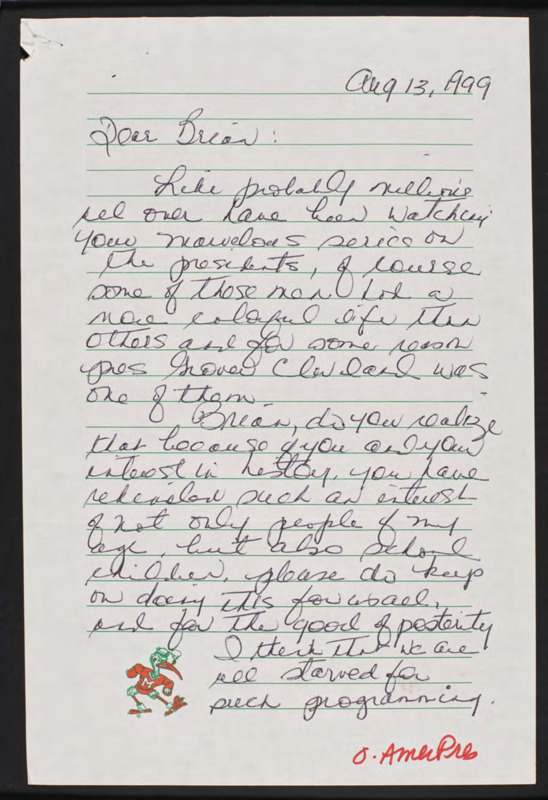 Aug 13, 1999
Dear Brian:
Like probably millions
all over have been watching
your marvelous series on
the presidents, of course
some of those men had a
more colorful life than
others and for some reason
pres Grover Cleveland was
one of them.
Brian, do you realize
that because of you and your
interest in history, you have
rekindled such an interest
of not only people of my
age, but also school
children, please do keep
on doing this for us all,
and for the good of posterity
I think that we are
all starved for
such programming.
M
O. AmerPres